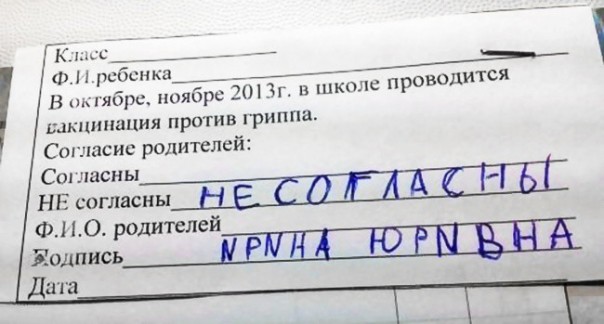 Класс
Ф.И.ребенка
В октябре, ноябре 2013г. в школе проводится
вакцинация против гриппа.
Согласие родителей:
Согласны
НЕ согласны НЕ СОГЛАСНЫ
Ф.И.О. родителей
Подпись NРNНА ЮРNВНА
Дата